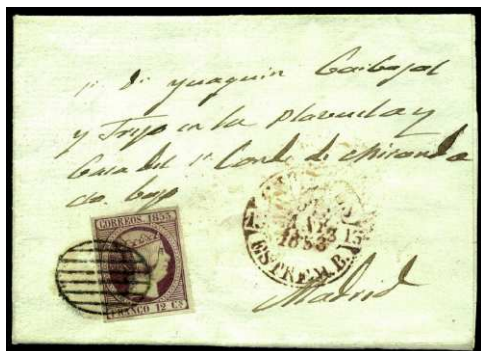 Sr Dn Yuaquin Carbajal
y Trejo en la plazuela y
Casa del Sr Conde de Miranda
cto bajo
CORREOS 1853
FRANCO 12 CS
1853
ESTREM. B.
Madrid